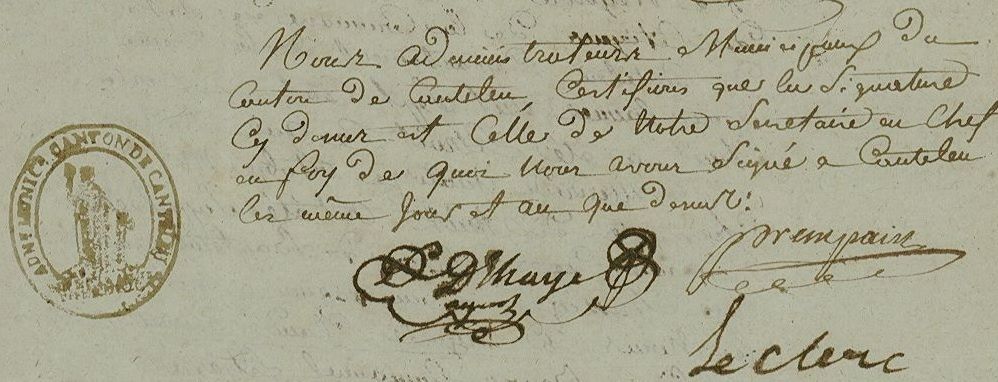 Nous administrateurs Municipaux du
Canton de Canteleu, Certifions que la Signature
Cy dessus est Celle de Notre Secretaire en Chef
en foy de quoi Nous avons Signé a Canteleu
les même Jour et an que dessus:
ADM. MUNIC. CANTON DE CANTELEU
D'haye
prempain
Leclerc